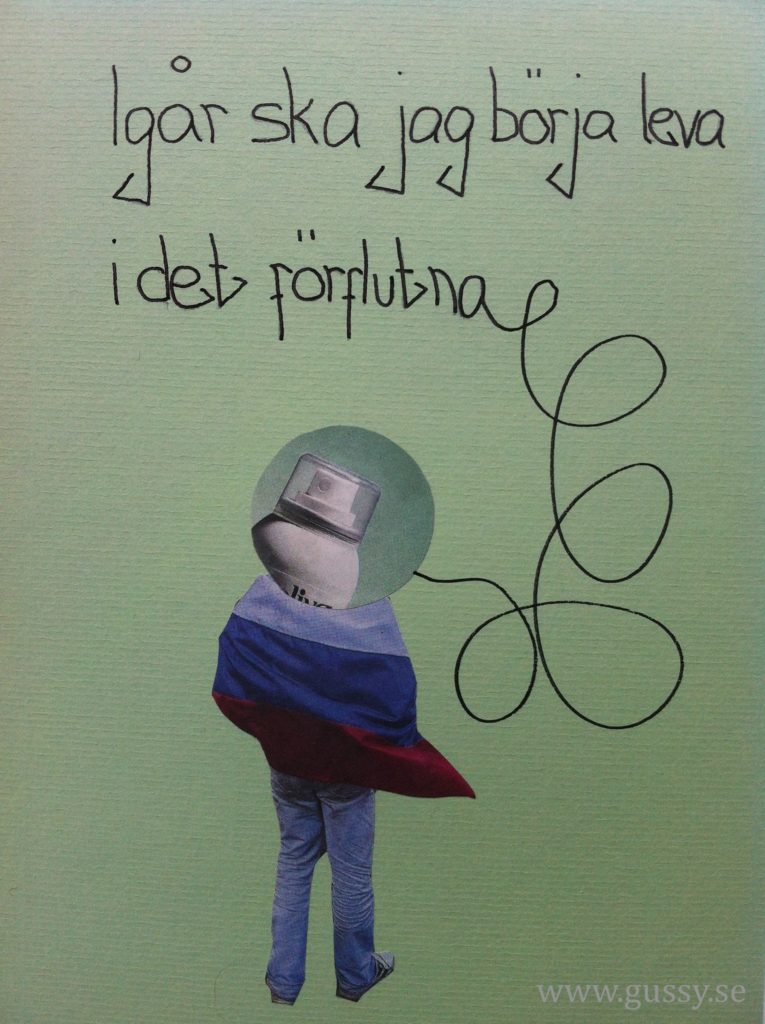 Igår ska jag börja leva
i det förflutna
www.gussy.se